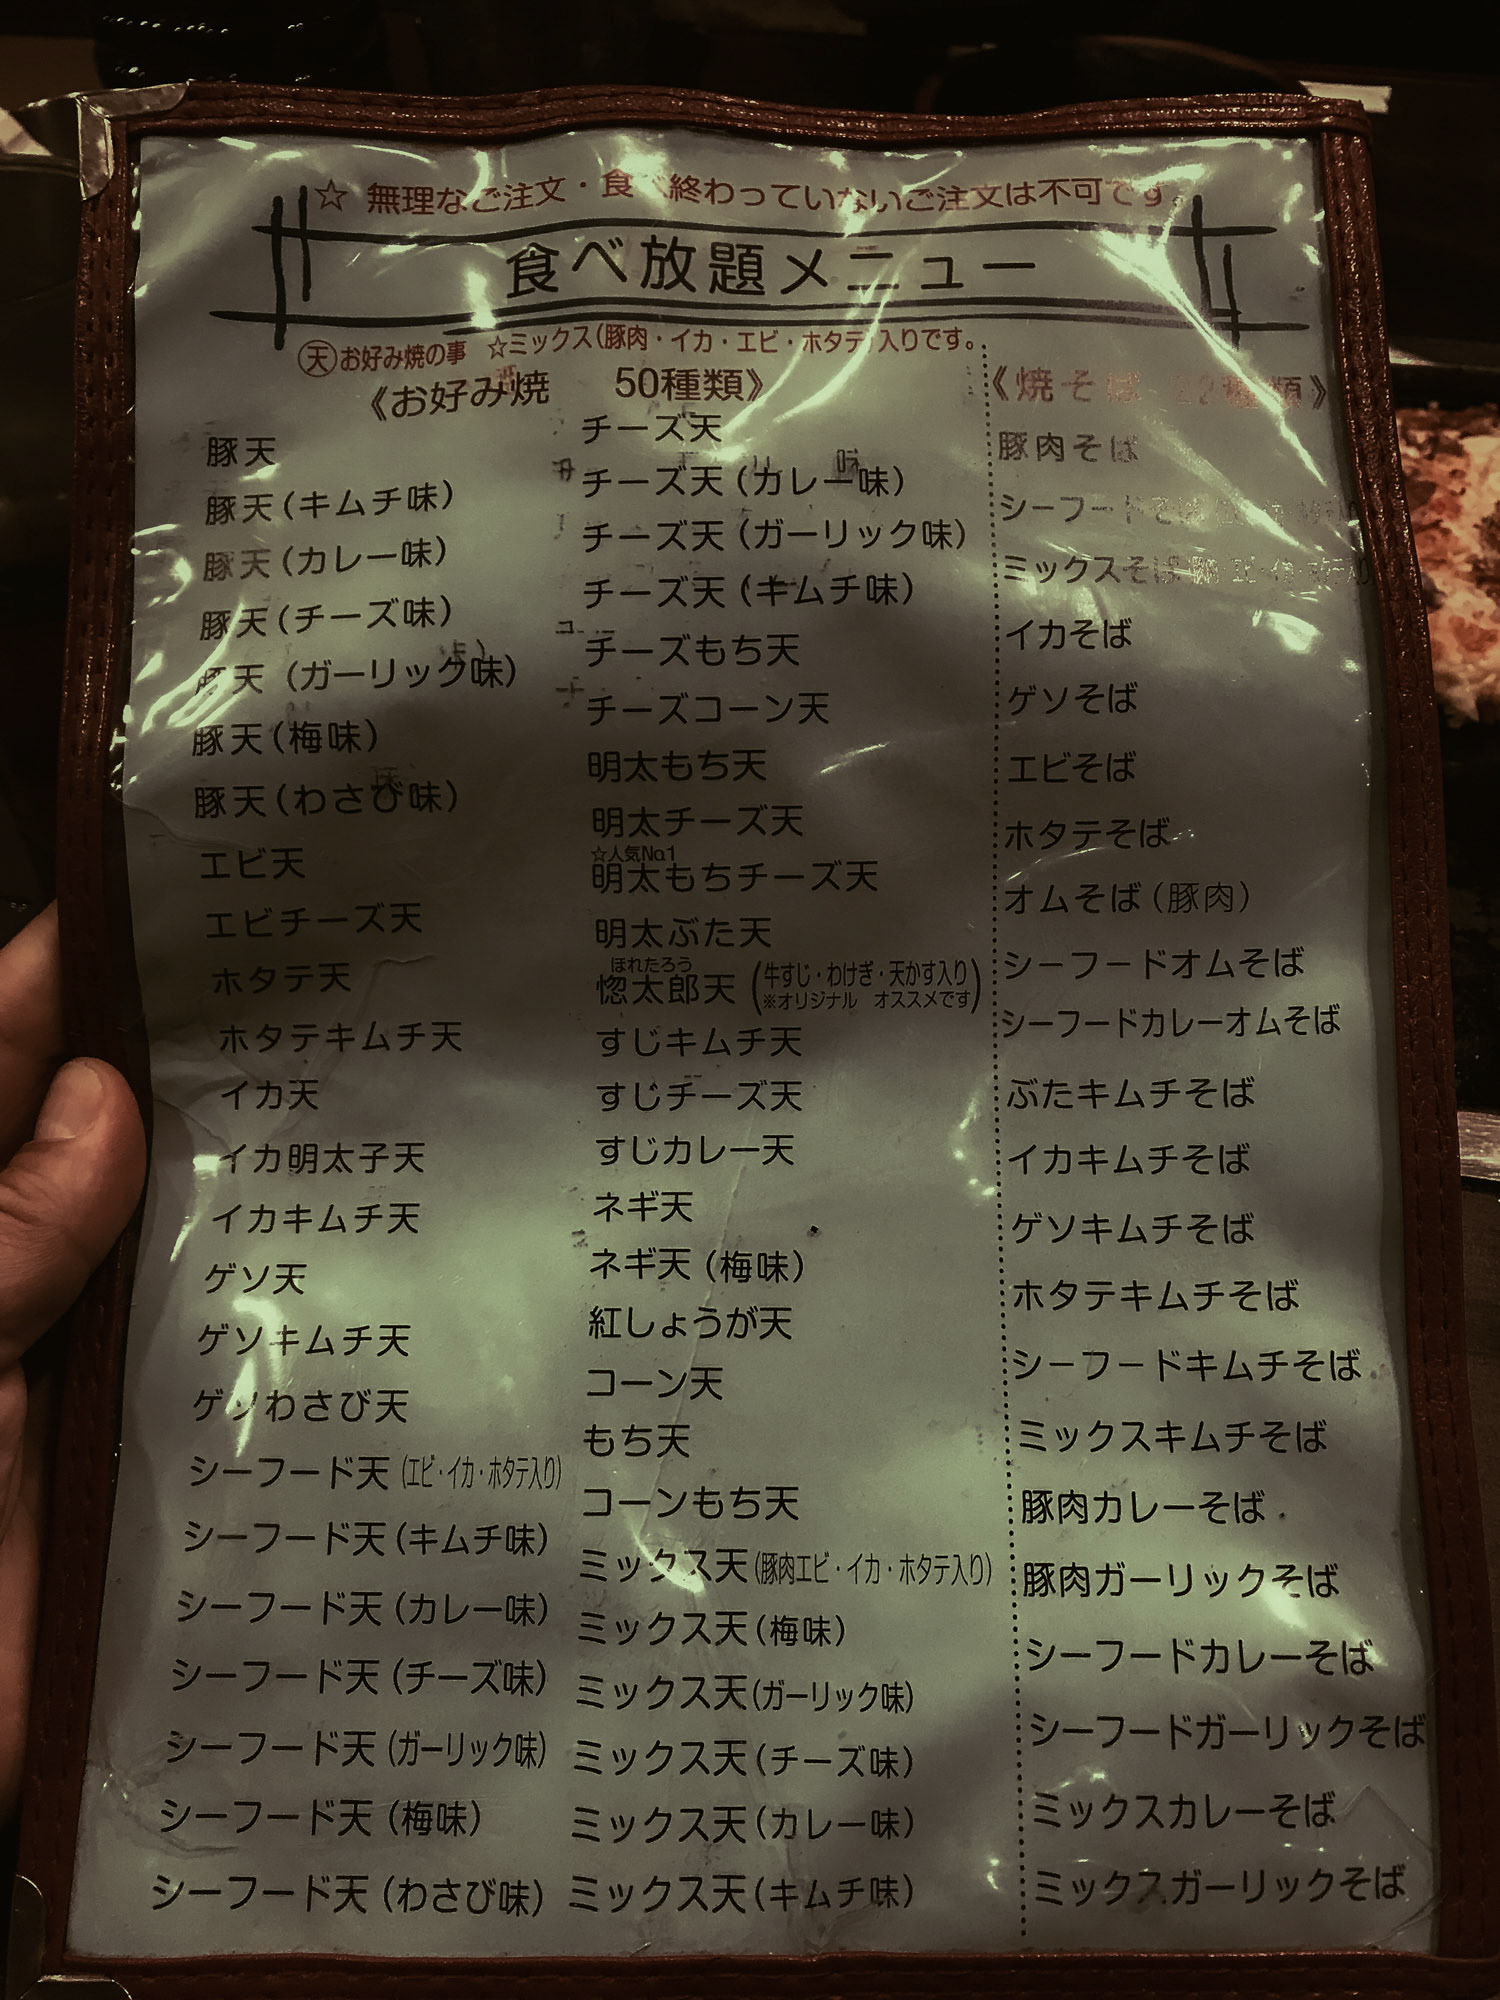 ☆ 無理なご注文・食べ終わっていないご注文は不可です。
食べ放題メニュー
天お好み焼の事 ☆ミックス(豚肉・イカ・エビ・ホタテ)入りです。
《お好み焼 50種類》
豚天
豚天(キムチ味)
豚天(カレー味)
豚天(チーズ味)
豚天(ガーリック味)
豚天(梅味)
豚天(わさび味)
エビ天
エビチーズ天
ホタテ天
ホタテキムチ天
イカ天
イカ明太子天
イカキムチ天
ゲソ天
ゲソキムチ天
ゲソわさび天
シーフード天(エビ・イカ・ホタテ入り)
シーフード天(キムチ味)
シーフード天(カレー味)
シーフード天(チーズ味)
シーフード天(ガーリック味)
シーフード天(梅味)
シーフード天(わさび味)
チーズ天
チーズ天(カレー味)
チーズ天(ガーリック味)
チーズ天(キムチ味)
チーズもち天
チーズコーン天
明太もち天
明太チーズ天
☆人気No.1
明太もちチーズ天
明太ぶた天
ほれたろう
惚太郎天(牛すじ・わけぎ・天かす入り
※オリジナル オススメです)
すじキムチ天
すじチーズ天
すじカレー天
ネギ天
ネギ天(梅味)
紅しょうが天
コーン天
もち天
コーンもち天
ミックス天(豚肉エビ・イカ・ホタテ入り)
ミックス天(梅味)
ミックス天(ガーリック味)
ミックス天(チーズ味)
ミックス天(カレー味)
ミックス天(キムチ味)
《焼そば 22種類》
豚肉そば
シーフードそば
ミックスそば
イカそば
ゲソそば
エビそば
ホタテそば
オムそば(豚肉)
シーフードオムそば
シーフードカレーオムそば
ぶたキムチそば
イカキムチそば
ゲソキムチそば
ホタテキムチそば
シーフードキムチそば
ミックスキムチそば
豚肉カレーそば
豚肉ガーリックそば
シーフードカレーそば
シーフードガーリックそば
ミックスカレーそば
ミックスガーリックそば